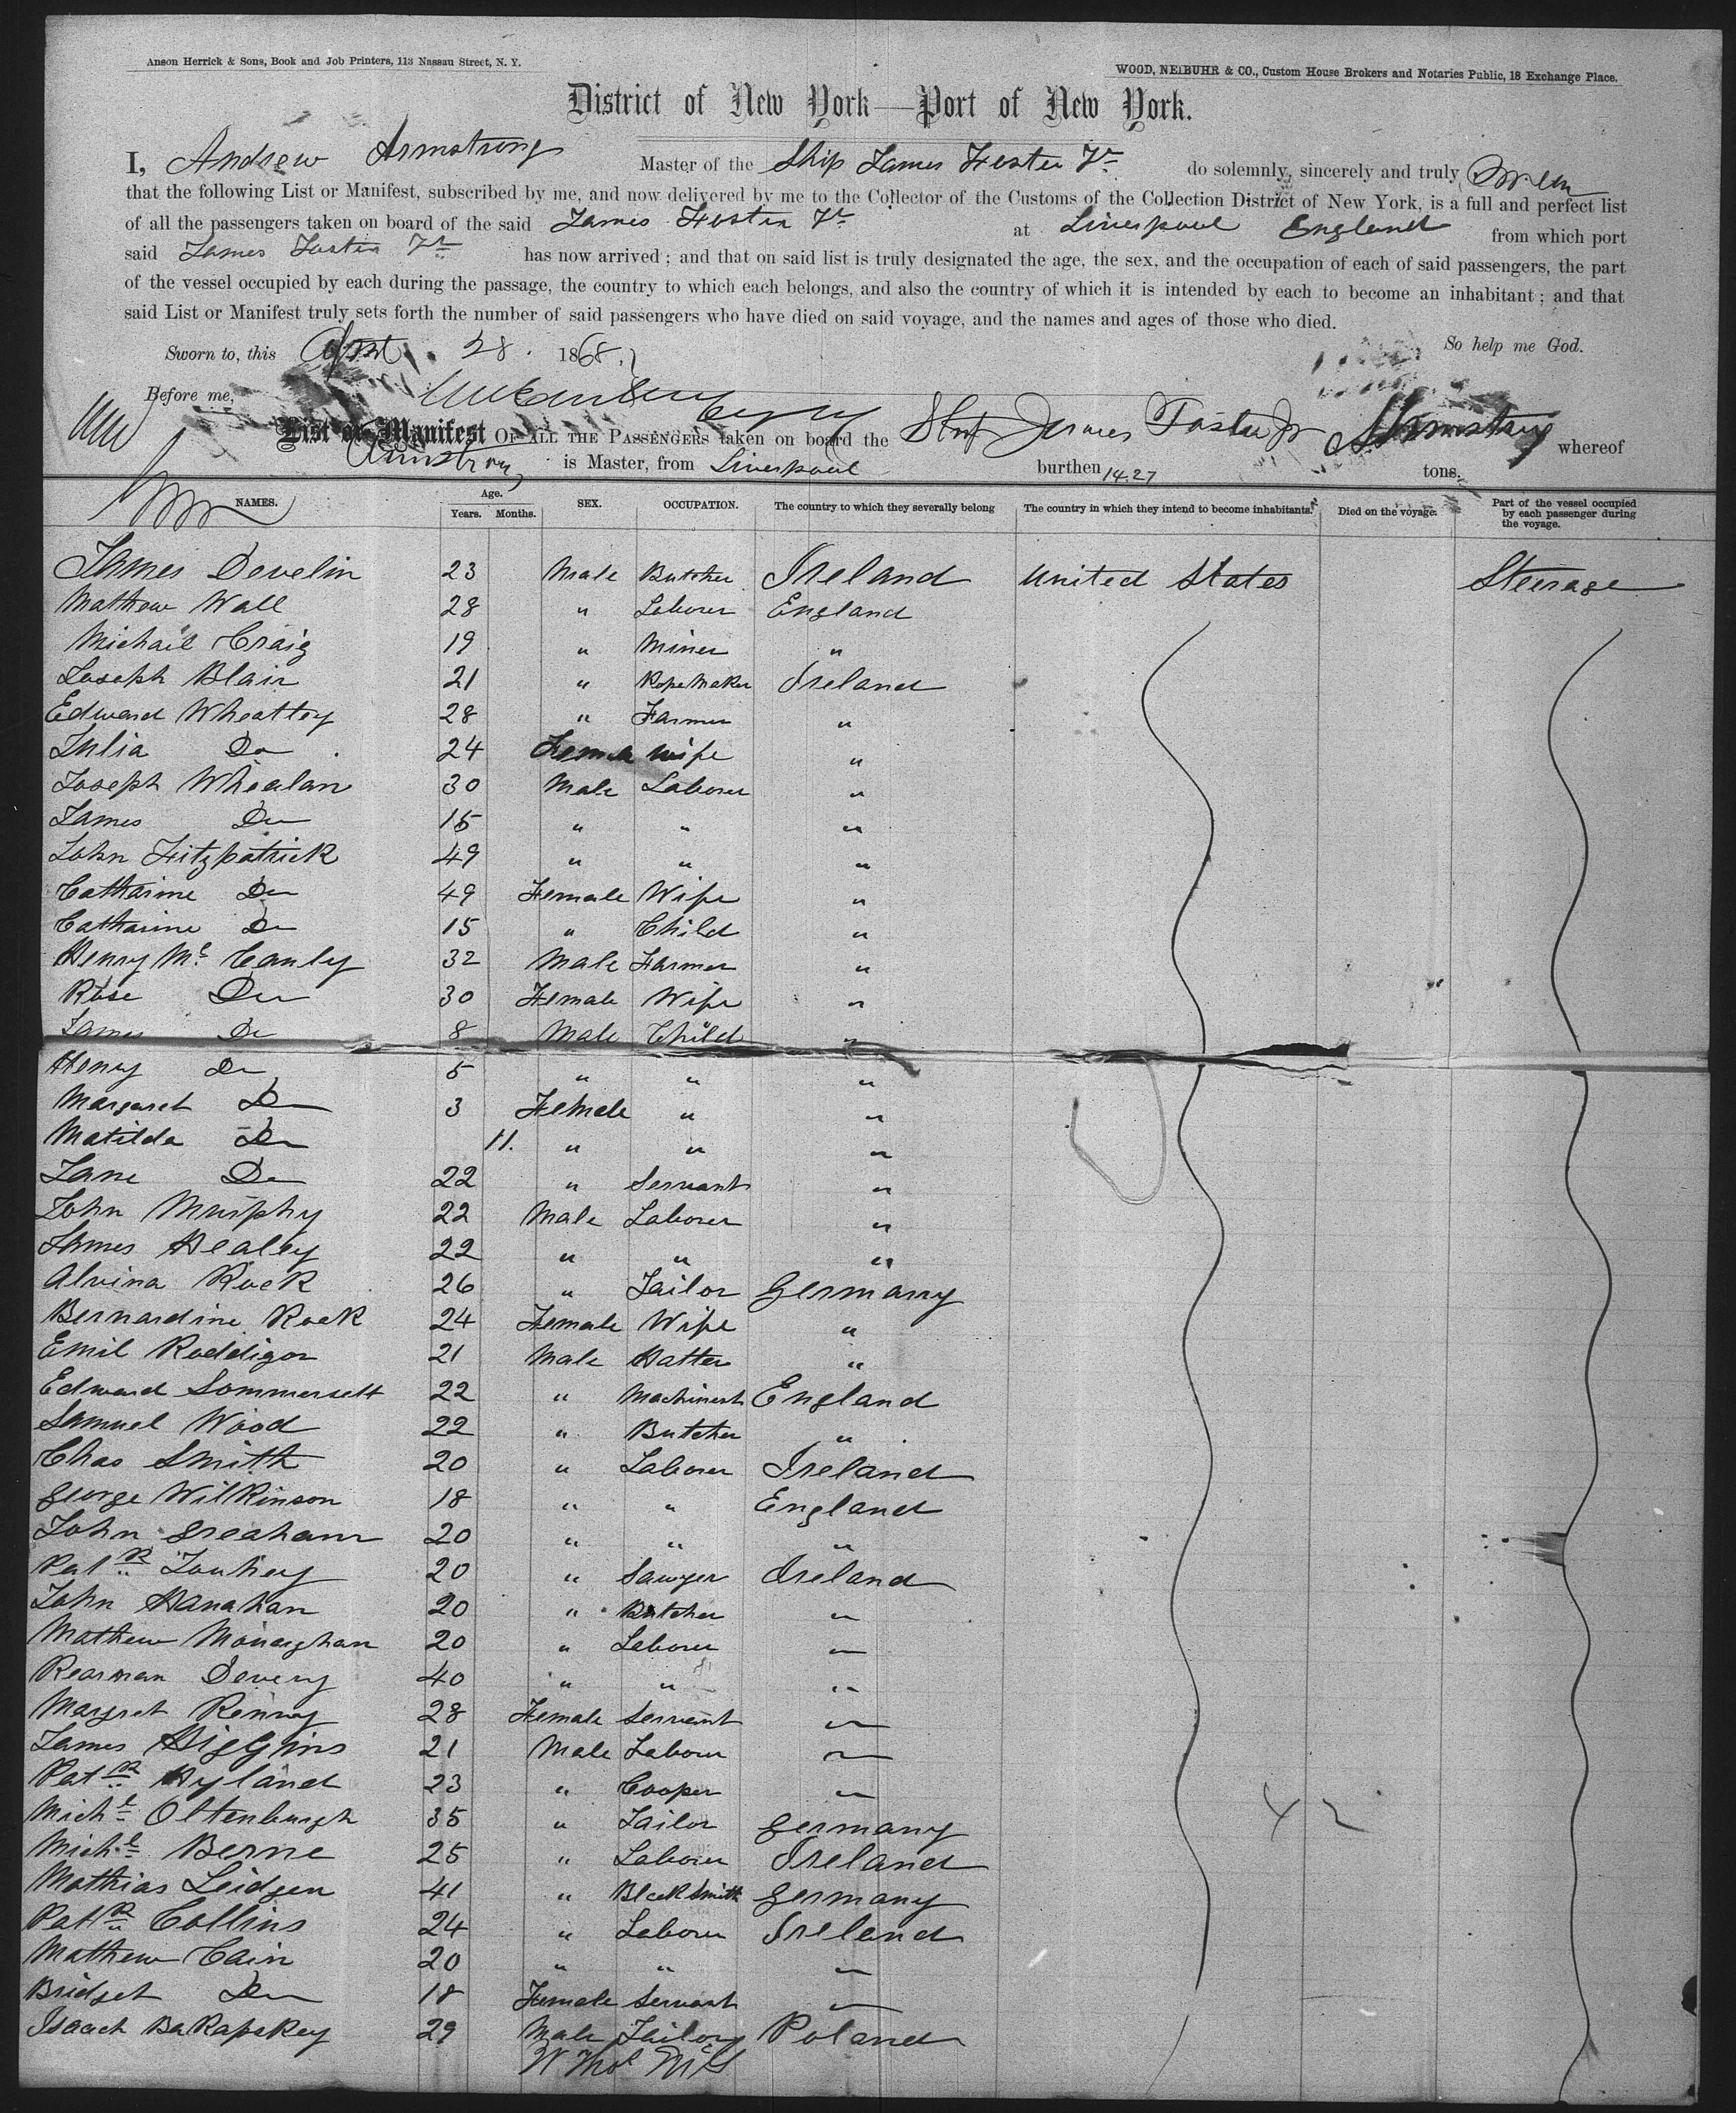 Anson Herrick & Sons, Book and Job Printers, 113 Nassau Street, N. Y.
WOOD, NEIBUHR & CO., Custom House Brokers and Notaries Public, 18 Exchange Place.
District of New York—Port of New York.
I, Andrew Armstrong Master of the Ship James Foster Jr do solemnly, sincerely and truly swear
that the following List or Manifest, subscribed by me, and now delivered by me to the Collector of the Customs of the Collection District of New York, is a full and perfect list
of all the passengers taken on board of the said James Foster Jr at Liverpool England from which port
said James Foster Jr has now arrived; and that on said list is truly designated the age, the sex, and the occupation of each of said passengers, the part
of the vessel occupied by each during the passage, the country to which each belongs, and also the country of which it is intended by each to become an inhabitant; and that
said List or Manifest truly sets forth the number of said passengers who have died on said voyage, and the names and ages of those who died.
Sworn to, this April 28. 1868. So help me God.
Before me,
List or Manifest OF ALL THE PASSENGERS taken on board the Ship James Foster Jr Armstrong whereof
Armstrong is Master, from Liverpool burthen 14.27 tons.
NAMES. Age. Years. Months. SEX. OCCUPATION. The country to which they severally belong The country in which they intend to become inhabitants. Died on the voyage. Part of the vessel occupied by each passenger during the voyage.
James Develin 23 Male Butcher Ireland United States Steerage
Mathew Wall 28 " Laborer England
Michael Craig 19 " Miner "
Joseph Blair 21 " Rope Maker Ireland
Edward Wheatley 28 " Farmer "
Julia Do 24 Female Wife "
Joseph Whealan 30 Male Laborer "
James Do 15 " " "
John Fitzpatrick 49 " " "
Catharine Do 49 Female Wife "
Catharine Do 15 " Child "
Henry Mc Canly 32 Male Farmer "
Rose Do 30 Female Wife "
James Do 8 Male Child "
Henry Do 5 " " "
Margaret Do 3 Female " "
Matilda Do 11. " " "
Jane Do 22 " Servant "
John Murphy 22 Male Laborer "
James Healey 22 " " "
Alvina Rock 26 " Tailor Germany
Bernardine Rock 24 Female Wife "
Emil Roddigor 21 Male Hatter "
Edward Sommersett 22 " Machinest England
Samuel Wood 22 " Butcher "
Chas Smith 20 " Laborer Ireland
George Wilkinson 18 " " England
John Greaham 20 " " "
Patk Touhey 20 " Sawyer Ireland
John Hanahan 20 " Butcher "
Mathew Monaghan 20 " Laborer "
Rearman Devery 40 " " "
Margret Kenny 28 Female Servant "
James Higgins 21 Male Laborer "
Patk Hyland 23 " Cooper "
Michl Oltenburgh 35 " Tailor Germany
Michl Berne 25 " Laborer Ireland
Mathias Leidgen 41 " Blacksmith Germany
Patk Collins 24 " Laborer Ireland
Mathew Cain 20 " " "
Bridget Do 18 Female Servant "
Isaach Bakapskey 29 Male Tailor Poland
42